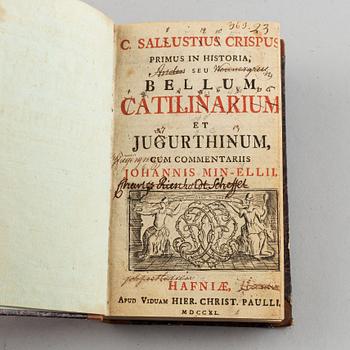 363. 23
C. SALLUSTIUS CRISPUS
PRIMUS IN HISTORIA,
SEU
BELLUM
CATILINARIUM
ET
JUGURTHINUM,
CUM COMMENTARIIS
JOHANNIS MIN-ELLII.
HAFNIÆ,
APUD VIDUAM HIER. CHRIST. PAULLI.
MDCCXL.